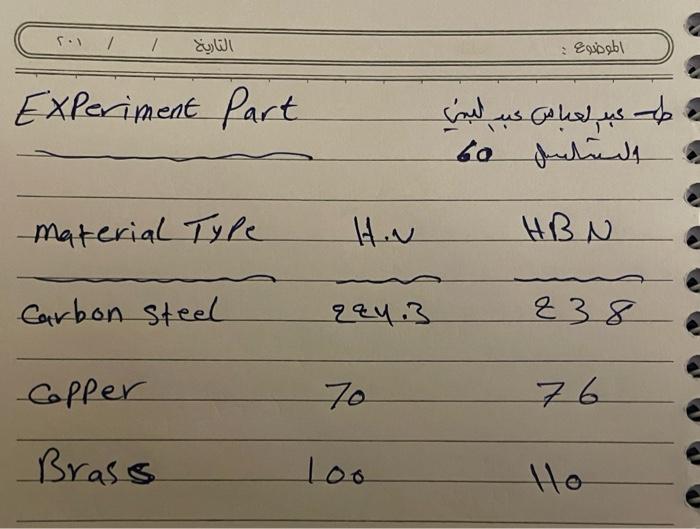 الموضوع : التاريخ / / ٢٠١
Experiment Part
ط عبد العباس عبد
التسلسل 60
Material Type H.N HBN
Carbon steel 224.3 238
Copper 70 76
Brass 100 110